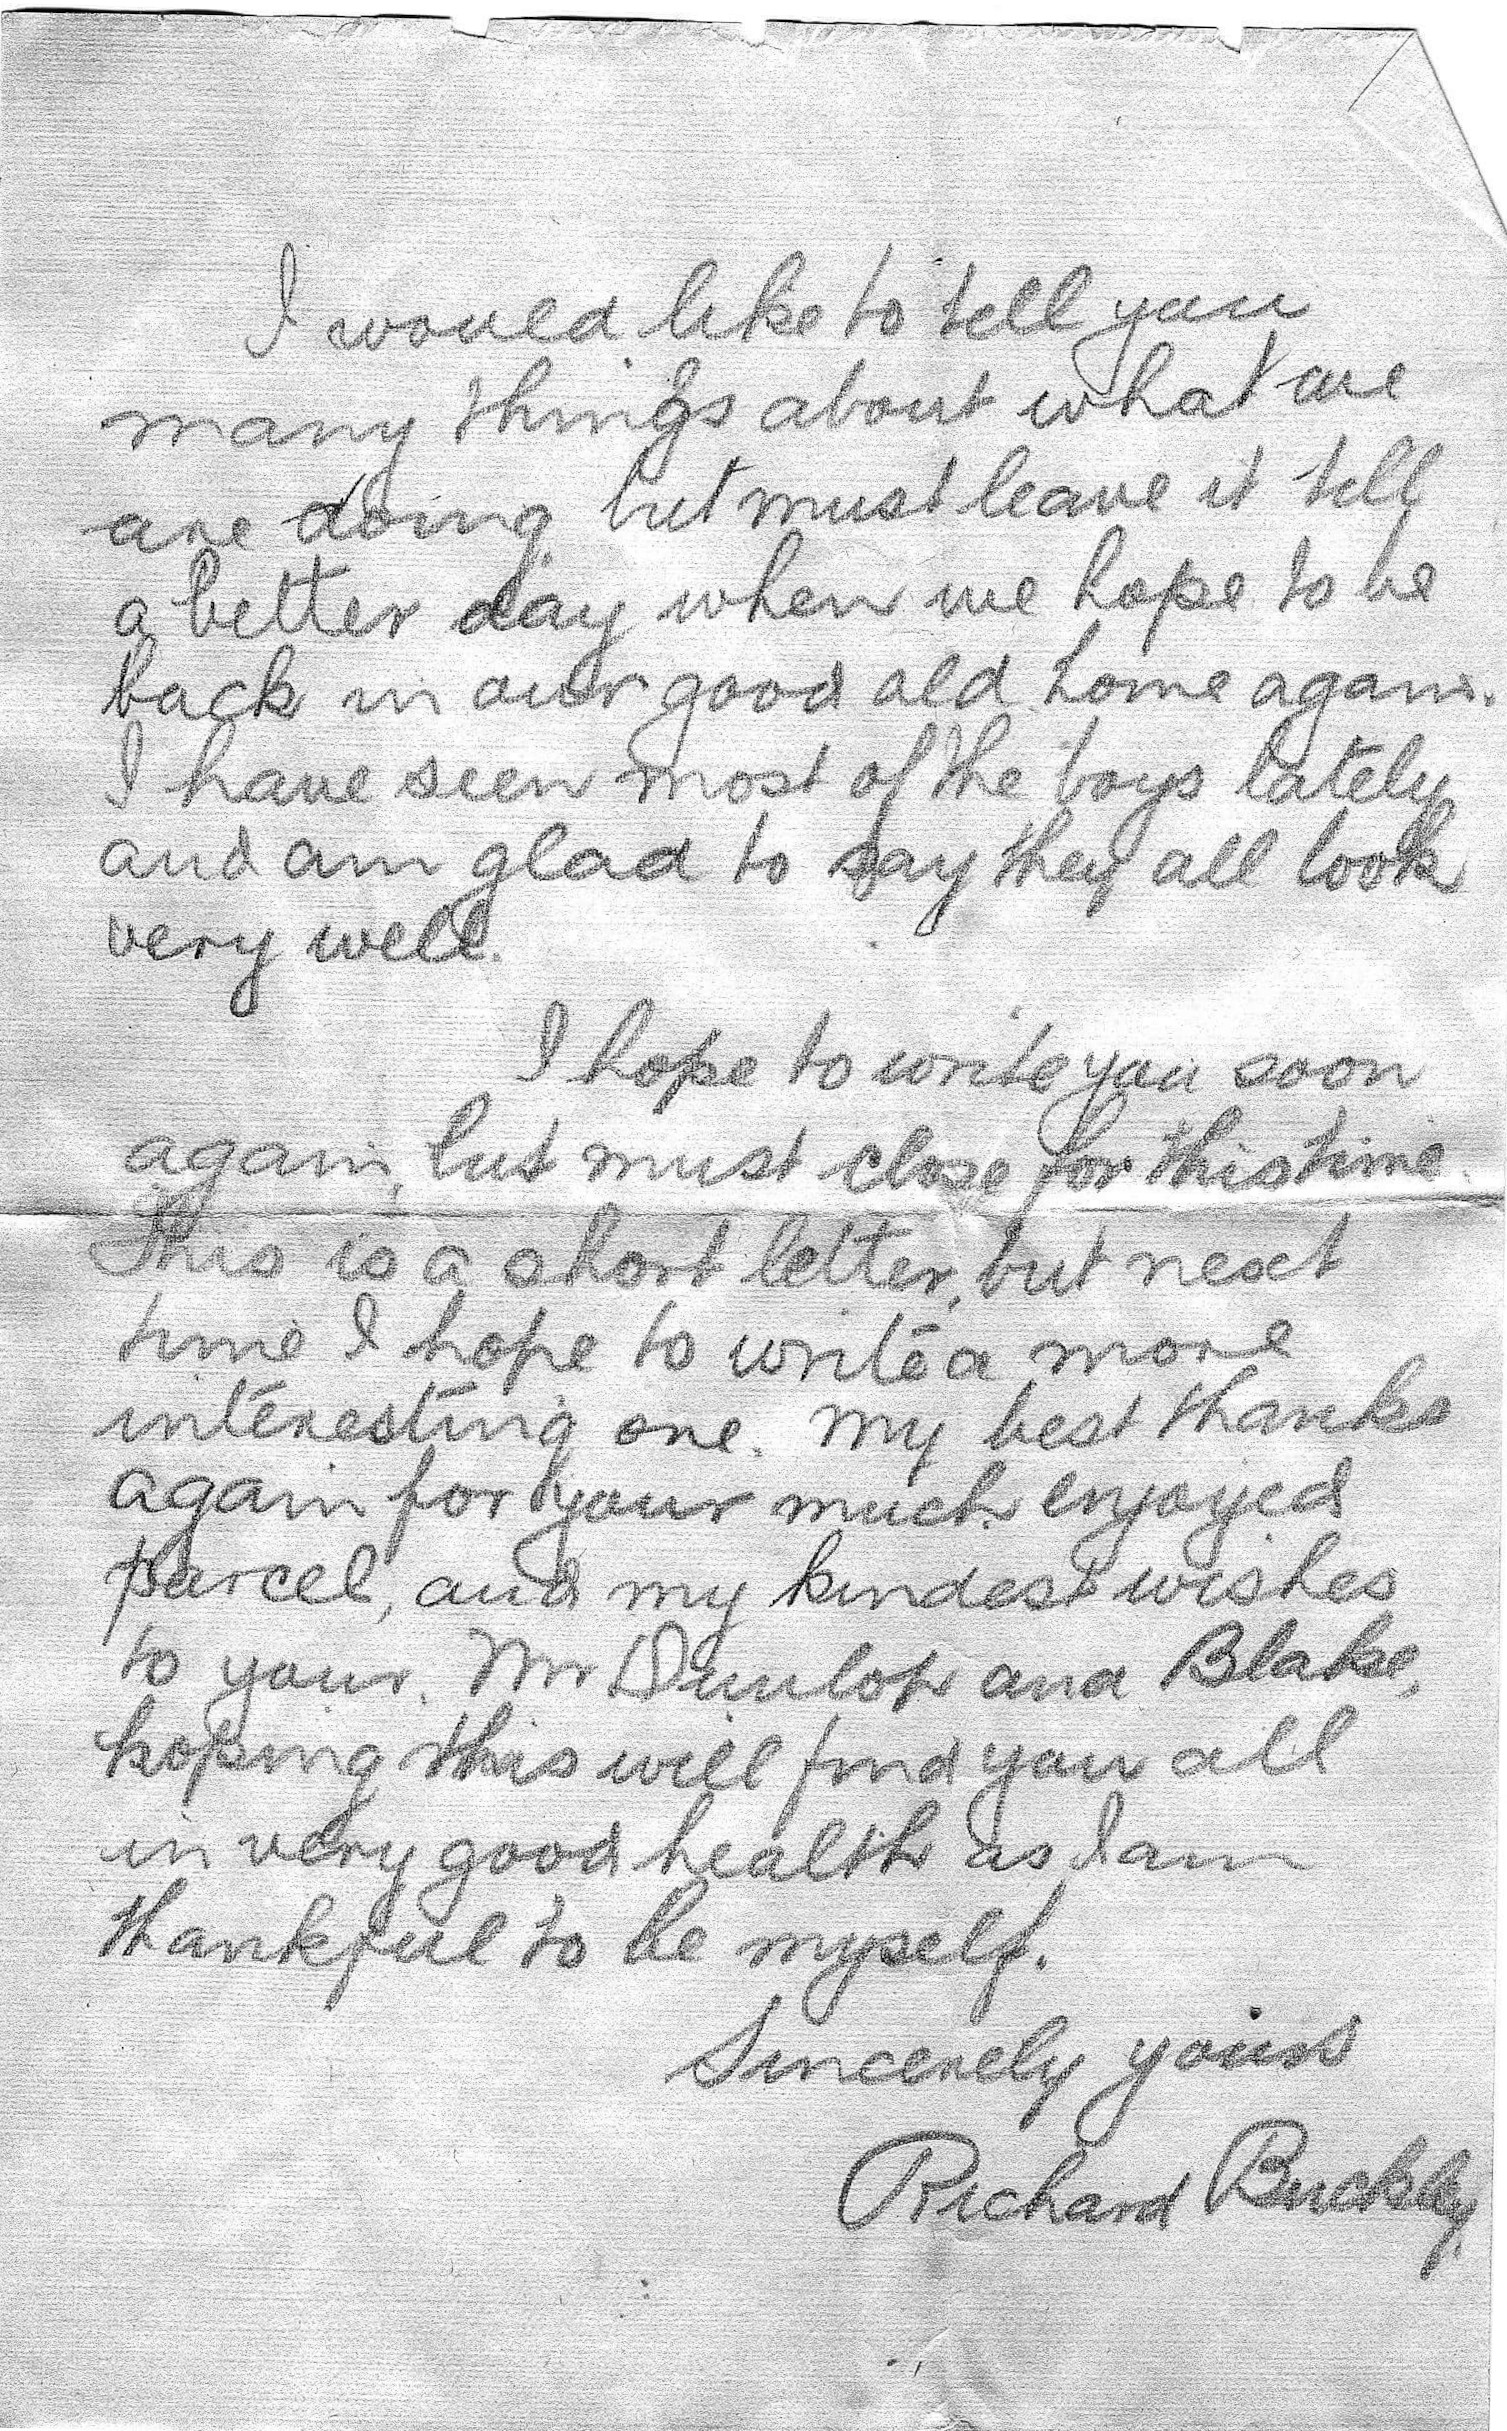 I would like to tell you
many things about what we
are doing but must leave it till
a better day when we hope to be
back in our good old home again.
I have seen most of the boys lately
and am glad to say they all look
very well.
I hope to write you soon
again, but must close for this time.
This is a short letter, but next
time I hope to write a more
interesting one. My best thanks
again for your much enjoyed
parcel, and my kindest wishes
to your. Mr Dunlop and Blake,
hoping this will find you all
in very good health as I am
thankful to be myself.
Sincerely yours
Richard Buckley